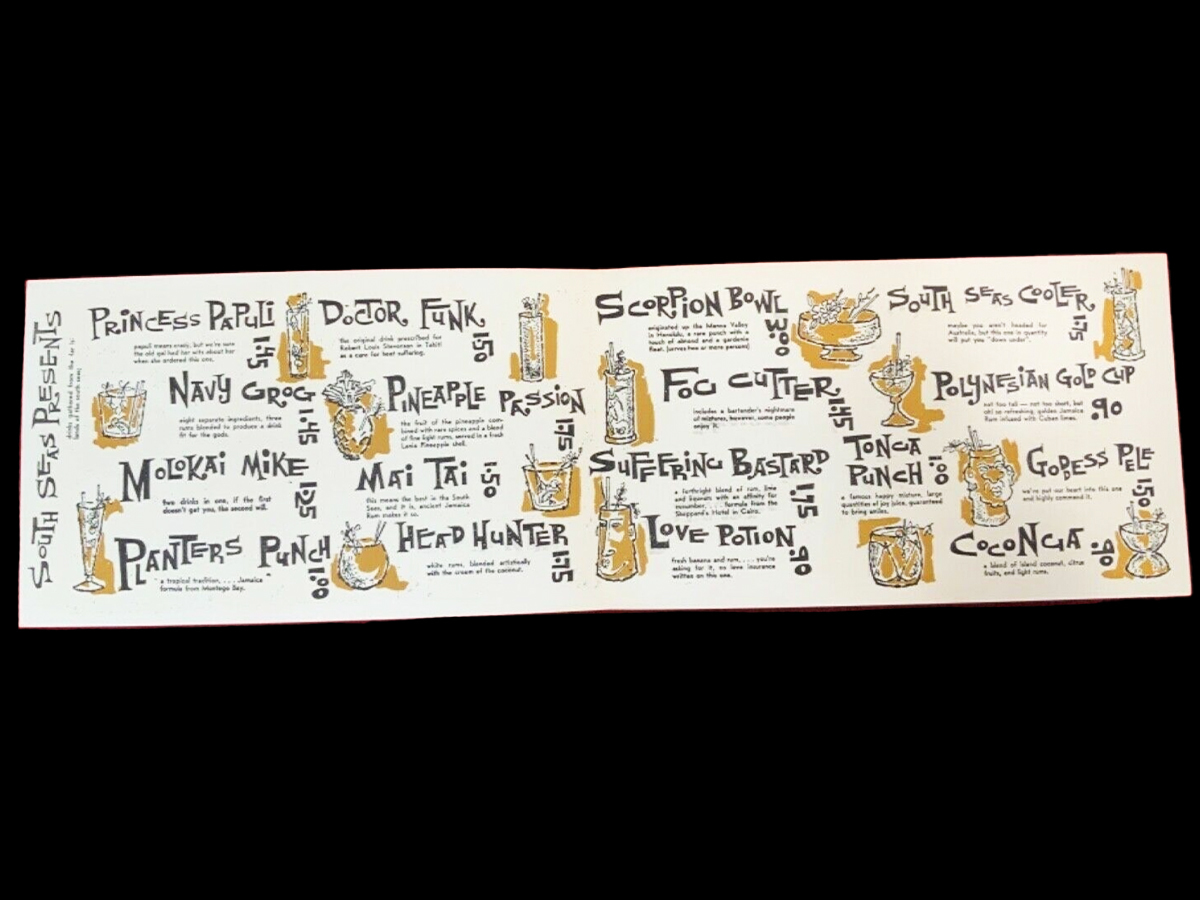 SOUTH SEAS PRESENTS
drinks gathered from the far is-
lands of the south seas:
PRINCESS PAPULI
1.45
papuli means crazy, but we're sure
the old gal had her wits about her
when she ordered this one.
NAVY GROG
1.45
eight separate ingredients, three
rums blended to produce a drink
fit for the gods.
MOLOKAI MIKE
1.25
two drinks in one, if the first
doesn't get you, the second will.
PLANTERS PUNCH
1.00
a tropical tradition, . . . . Jamaica
formula from Montego Bay.
DOCTOR FUNK
1.50
the original drink prescribed for
Robert Louis Stevenson in Tahiti
as a cure for heat suffering.
PINEAPPLE PASSION
1.75
the fruit of the pineapple com-
bined with rare spices and a blend
of fine light rums, served in a fresh
Lanie Pineapple shell.
MAI TAI
1.50
this means the best in the South
Seas, and it is, ancient Jamaica
Rum makes it so.
HEAD HUNTER
1.75
white rums, blended artistically
with the cream of the coconut.
SCORPION BOWL
3.00
originated up the Manoa Valley
in Honolulu, a rare punch with a
touch of almond and a gardenia
float. (serves two or more persons)
FOG CUTTER
1.45
includes a bartender's nightmare
of mixtures, however, some people
enjoy it.
SUFFERING BASTARD
1.75
a forthright blend of rum, lime
and liqueurs with an affinity for
cucumber, . . . formula from the
Sheppard's Hotel in Cairo.
LOVE POTION
.90
fresh banana and rum, . . . . you're
asking for it, no love insurance
written on this one.
SOUTH SEAS COOLER
1.75
maybe you aren't headed for
Australia, but this one in quantity
will put you "down under".
POLYNESIAN GOLD CUP
.90
not too tall — not too short, but
oh! so refreshing, golden Jamaica
Rum infused with Cuban limes.
TONGA
PUNCH
1.00
a famous happy mixture, large
quantities of joy juice, guaranteed
to bring smiles.
GODESS PELE
1.50
we've put our heart into this one
and highly commend it.
COCONGA
.90
a blend of island coconut, citrus
fruits, and light rums.